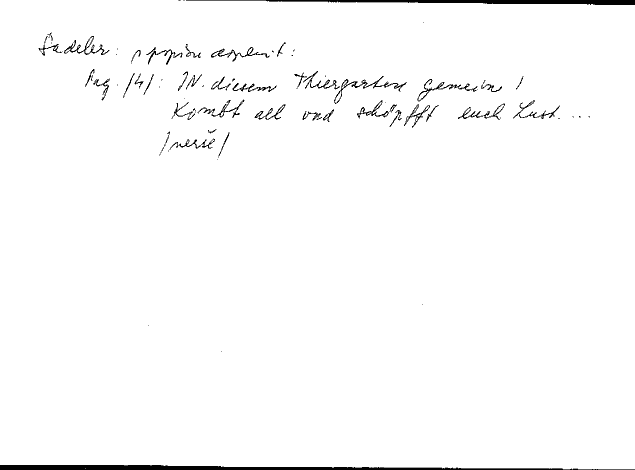 Sadeler: v popisu doplnit:
Pag. /4/: IN. diesem Thiergarten gemein /
Kombt all vnd schöpfft euch Lust. ...
/verše/